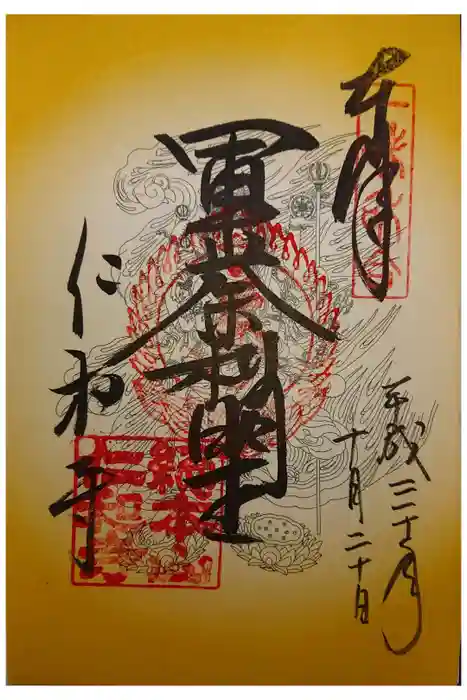 奉拝
平成三十年
十月二十日
軍荼利明王
仁和寺
総本山
仁和寺